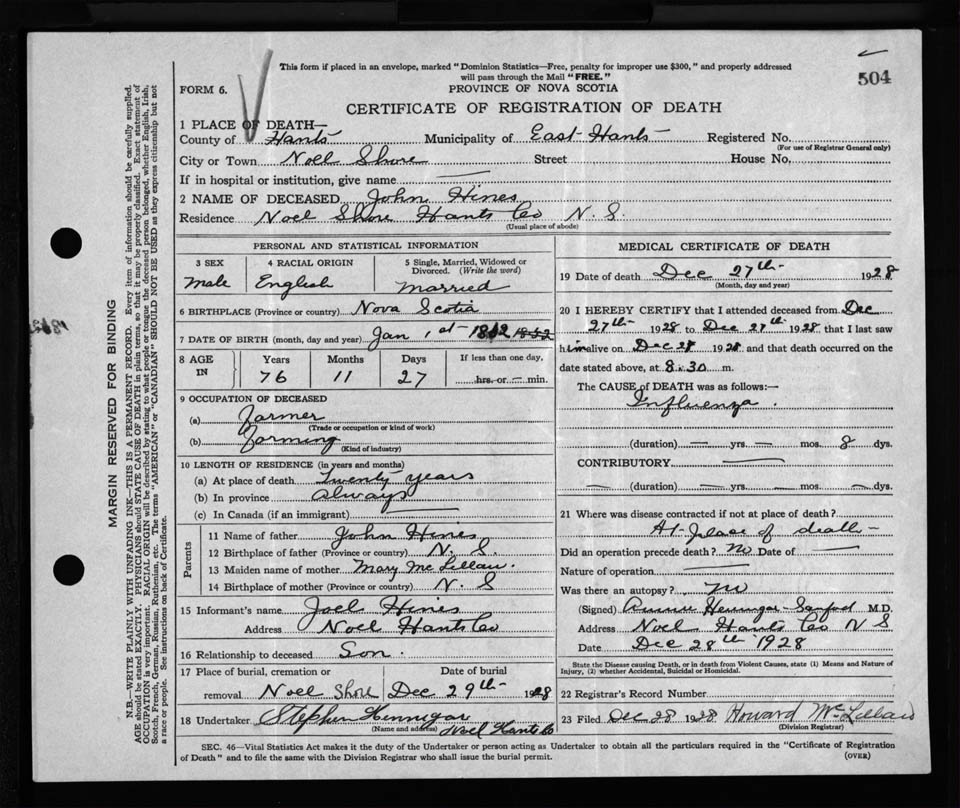 This form if placed in an envelope, marked "Dominion Statistics—Free, penalty for improper use $300," and properly addressed
will pass through the Mail "FREE."
504
FORM 6.
PROVINCE OF NOVA SCOTIA
CERTIFICATE OF REGISTRATION OF DEATH
1 PLACE OF DEATH—
County of Hants Municipality of East Hants Registered No.
(For use of Registrar General only)
City or Town Noel Shore Street House No.
If in hospital or institution, give name —
2 NAME OF DECEASED John Hines
Residence Noel Shore Hants Co N. S.
(Usual place of abode)
PERSONAL AND STATISTICAL INFORMATION
3 SEX 4 RACIAL ORIGIN 5 Single, Married, Widowed or
Divorced. (Write the word)
Male English Married
6 BIRTHPLACE (Province or country) Nova Scotia
7 DATE OF BIRTH (month, day and year) Jan 1st 1852
8 AGE IN Years Months Days If less than one day,
76 11 27 hrs. or — min.
9 OCCUPATION OF DECEASED
(a) Farmer
(Trade or occupation or kind of work)
(b) Farming
(Kind of industry)
10 LENGTH OF RESIDENCE (in years and months)
(a) At place of death Twenty years
(b) In province Always
(c) In Canada (if an immigrant) —
Parents
11 Name of father John Hines
12 Birthplace of father (Province or country) N. S.
13 Maiden name of mother Mary McLellan
14 Birthplace of mother (Province or country) N. S
15 Informant's name Joel Hines
Address Noel Hants Co
16 Relationship to deceased Son.
17 Place of burial, cremation or Date of burial
removal Noel Shore Dec 29th 1928
18 Undertaker Stephen Hennigar
(Name and address) Noel Hants Co
MEDICAL CERTIFICATE OF DEATH
19 Date of death Dec 27th 1928
(Month, day and year)
20 I HEREBY CERTIFY that I attended deceased from Dec
27th 1928 to Dec 27th 1928 that I last saw
him alive on Dec 28 1928 and that death occurred on the
date stated above, at 8.30 m.
The CAUSE of DEATH was as follows:—
Influenza.
(duration) — yrs. — mos. 8 dys.
CONTRIBUTORY —
— (duration) — yrs. — mos. — dys.
21 Where was disease contracted if not at place of death?
At place of death
Did an operation precede death? no Date of —
Nature of operation —
Was there an autopsy? no
(Signed) Hennigar-Sanford M.D.
Address Noel Hants Co N S
Date Dec 28th 1928
State the Disease causing Death, or in death from Violent Causes, state (1) Means and Nature of
Injury, (2) whether Accidental, Suicidal or Homicidal.
22 Registrar's Record Number
23 Filed Dec 28 1928 Howard McLellan
(Division Registrar)
SEC. 46—Vital Statistics Act makes it the duty of the Undertaker or person acting as Undertaker to obtain all the particulars required in the "Certificate of Registration
of Death" and to file the same with the Division Registrar who shall issue the burial permit.
(OVER)
MARGIN RESERVED FOR BINDING
N.B.—WRITE PLAINLY WITH UNFADING INK—THIS IS A PERMANENT RECORD. Every item of information should be carefully supplied.
AGE should be stated EXACTLY. PHYSICIANS should STATE CAUSE OF DEATH in plain terms, so that it may be properly classified. Exact statement of
OCCUPATION is very important. RACIAL ORIGIN will be described by stating to what people or tongue the deceased person belonged, whether English, Irish,
Scotch, French, German, Russian, Ruthenian, etc. The terms "AMERICAN" or "CANADIAN" SHOULD NOT BE USED as they express citizenship but not
a race or people. See instructions on back of Certificate.